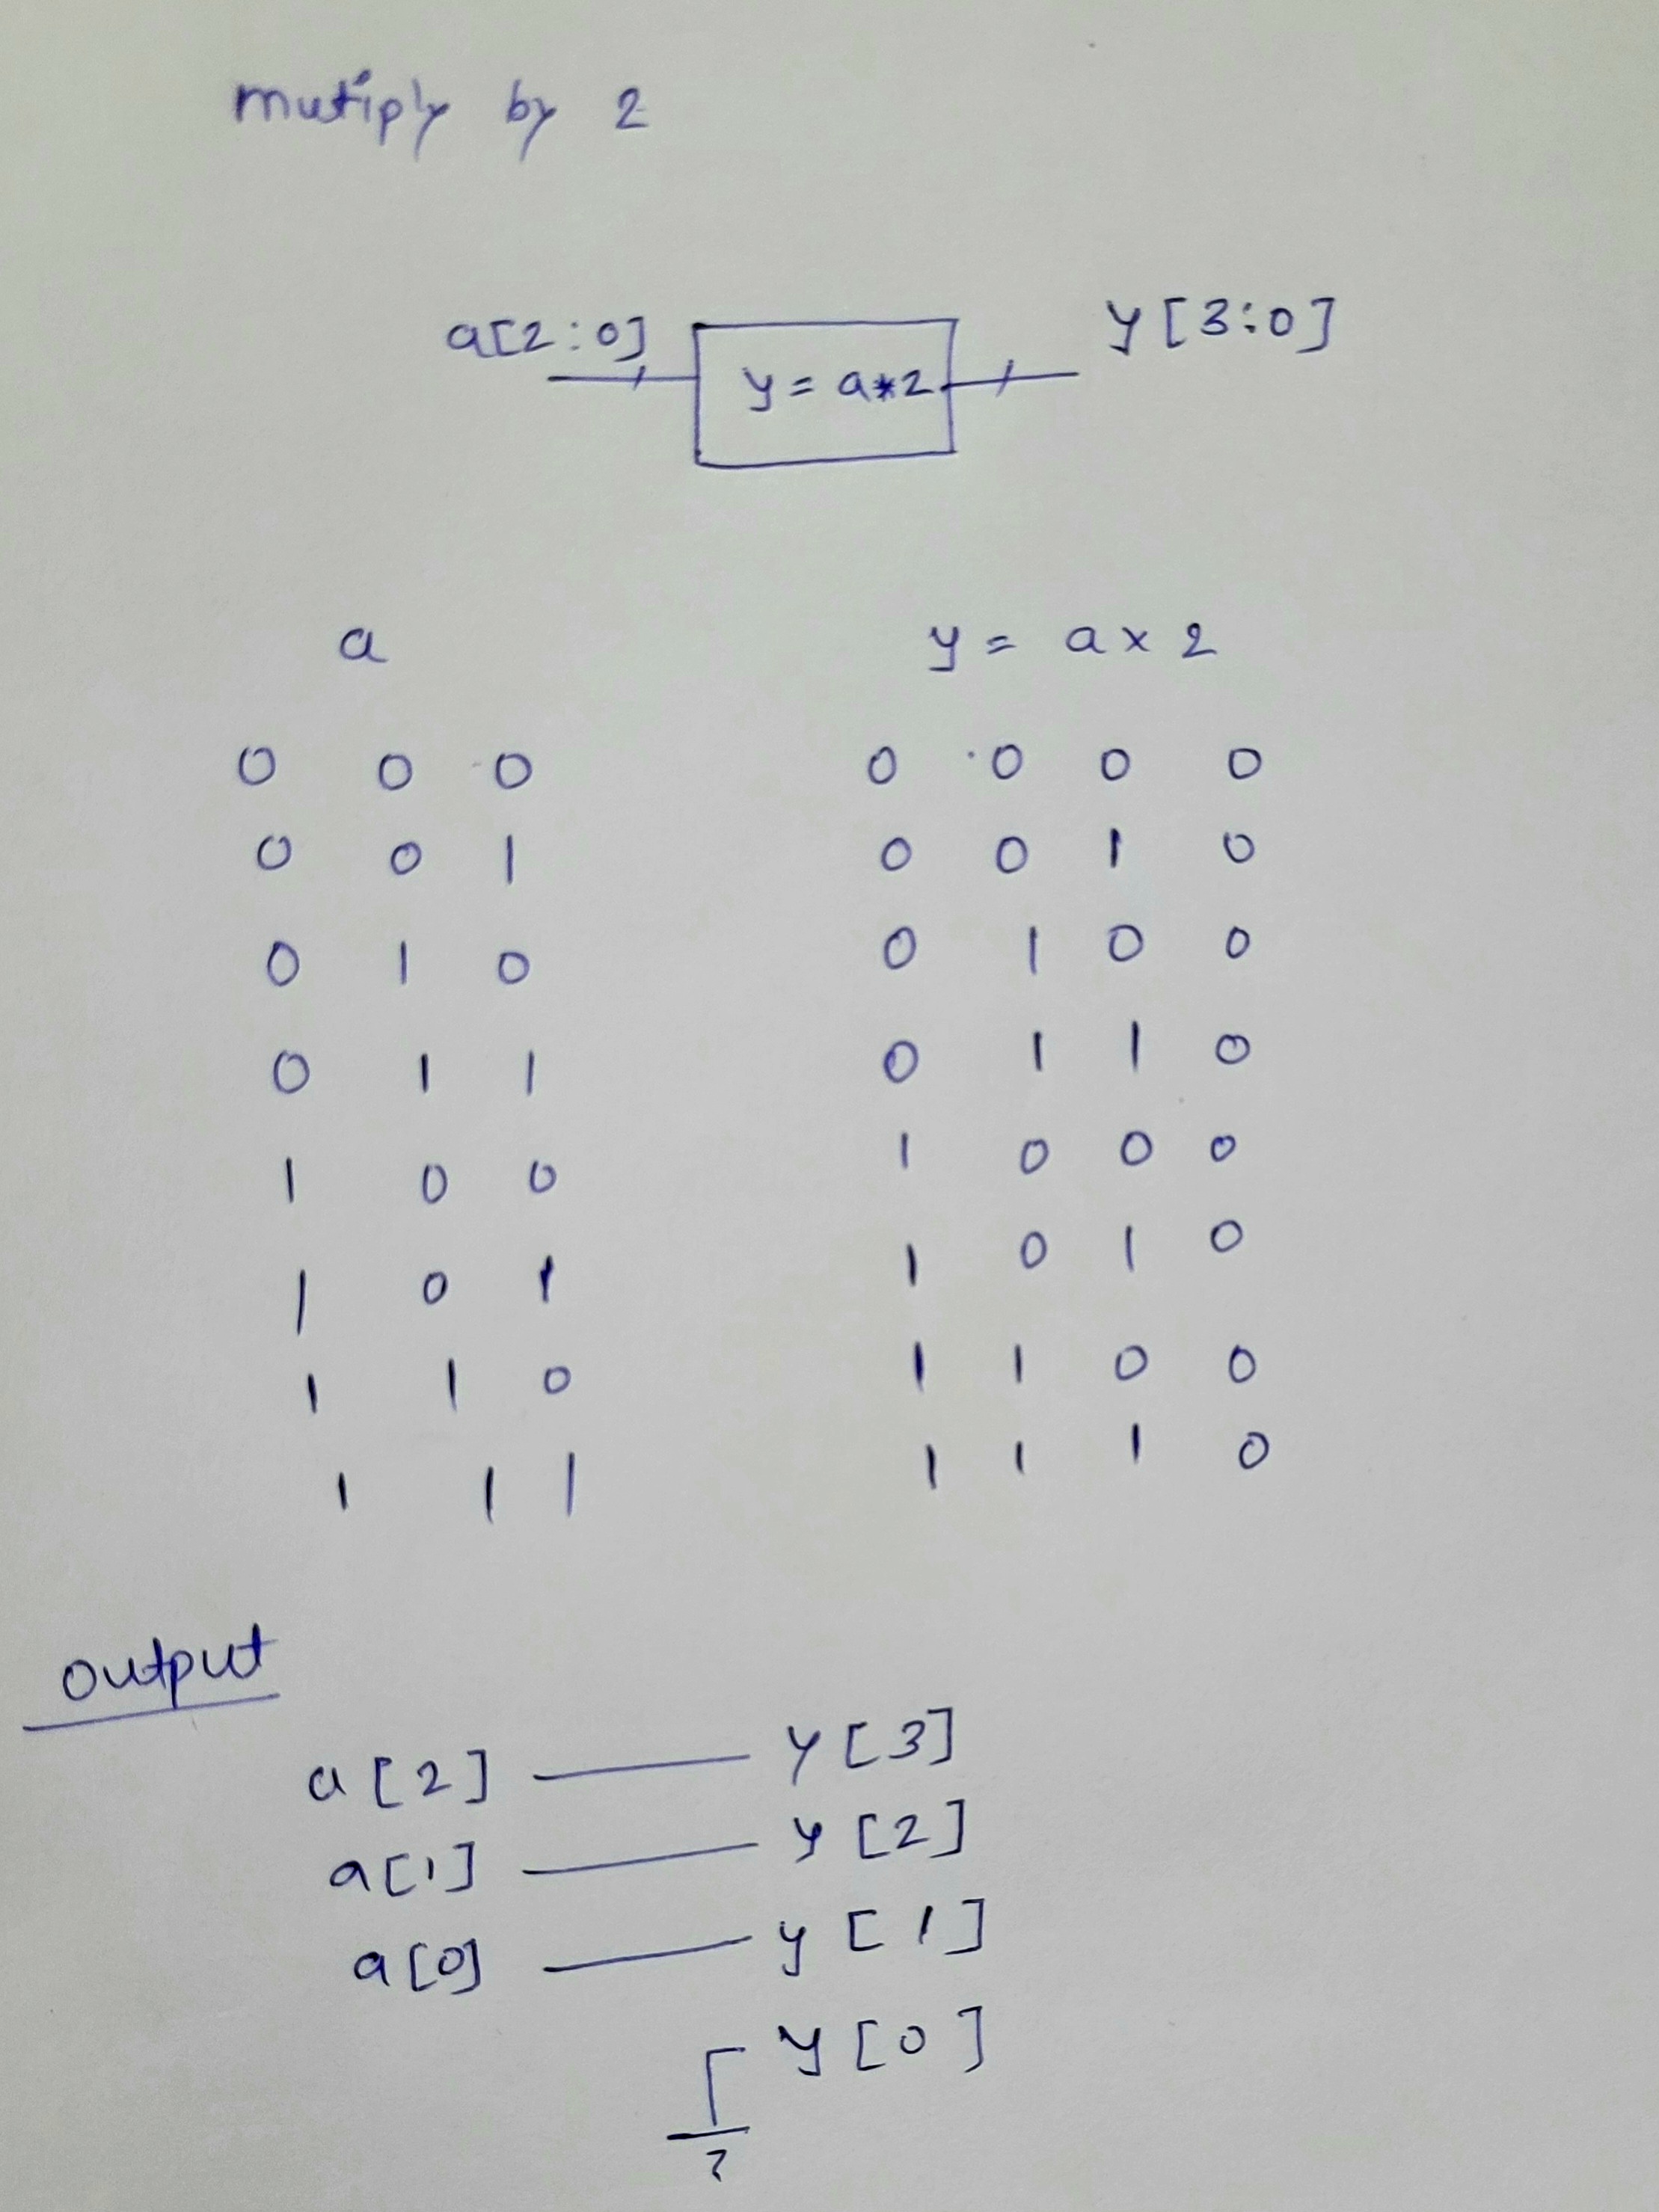 mutiply by 2
a[2:0]
y = a*2
y[3:0]
a y = a x 2
0 0 0 0 0 0 0
0 0 1 0 0 1 0
0 1 0 0 1 0 0
0 1 1 0 1 1 0
1 0 0 1 0 0 0
1 0 1 1 0 1 0
1 1 0 1 1 0 0
1 1 1 1 1 1 0
output
a[2] y[3]
a[1] y[2]
a[0] y[1]
y[0]